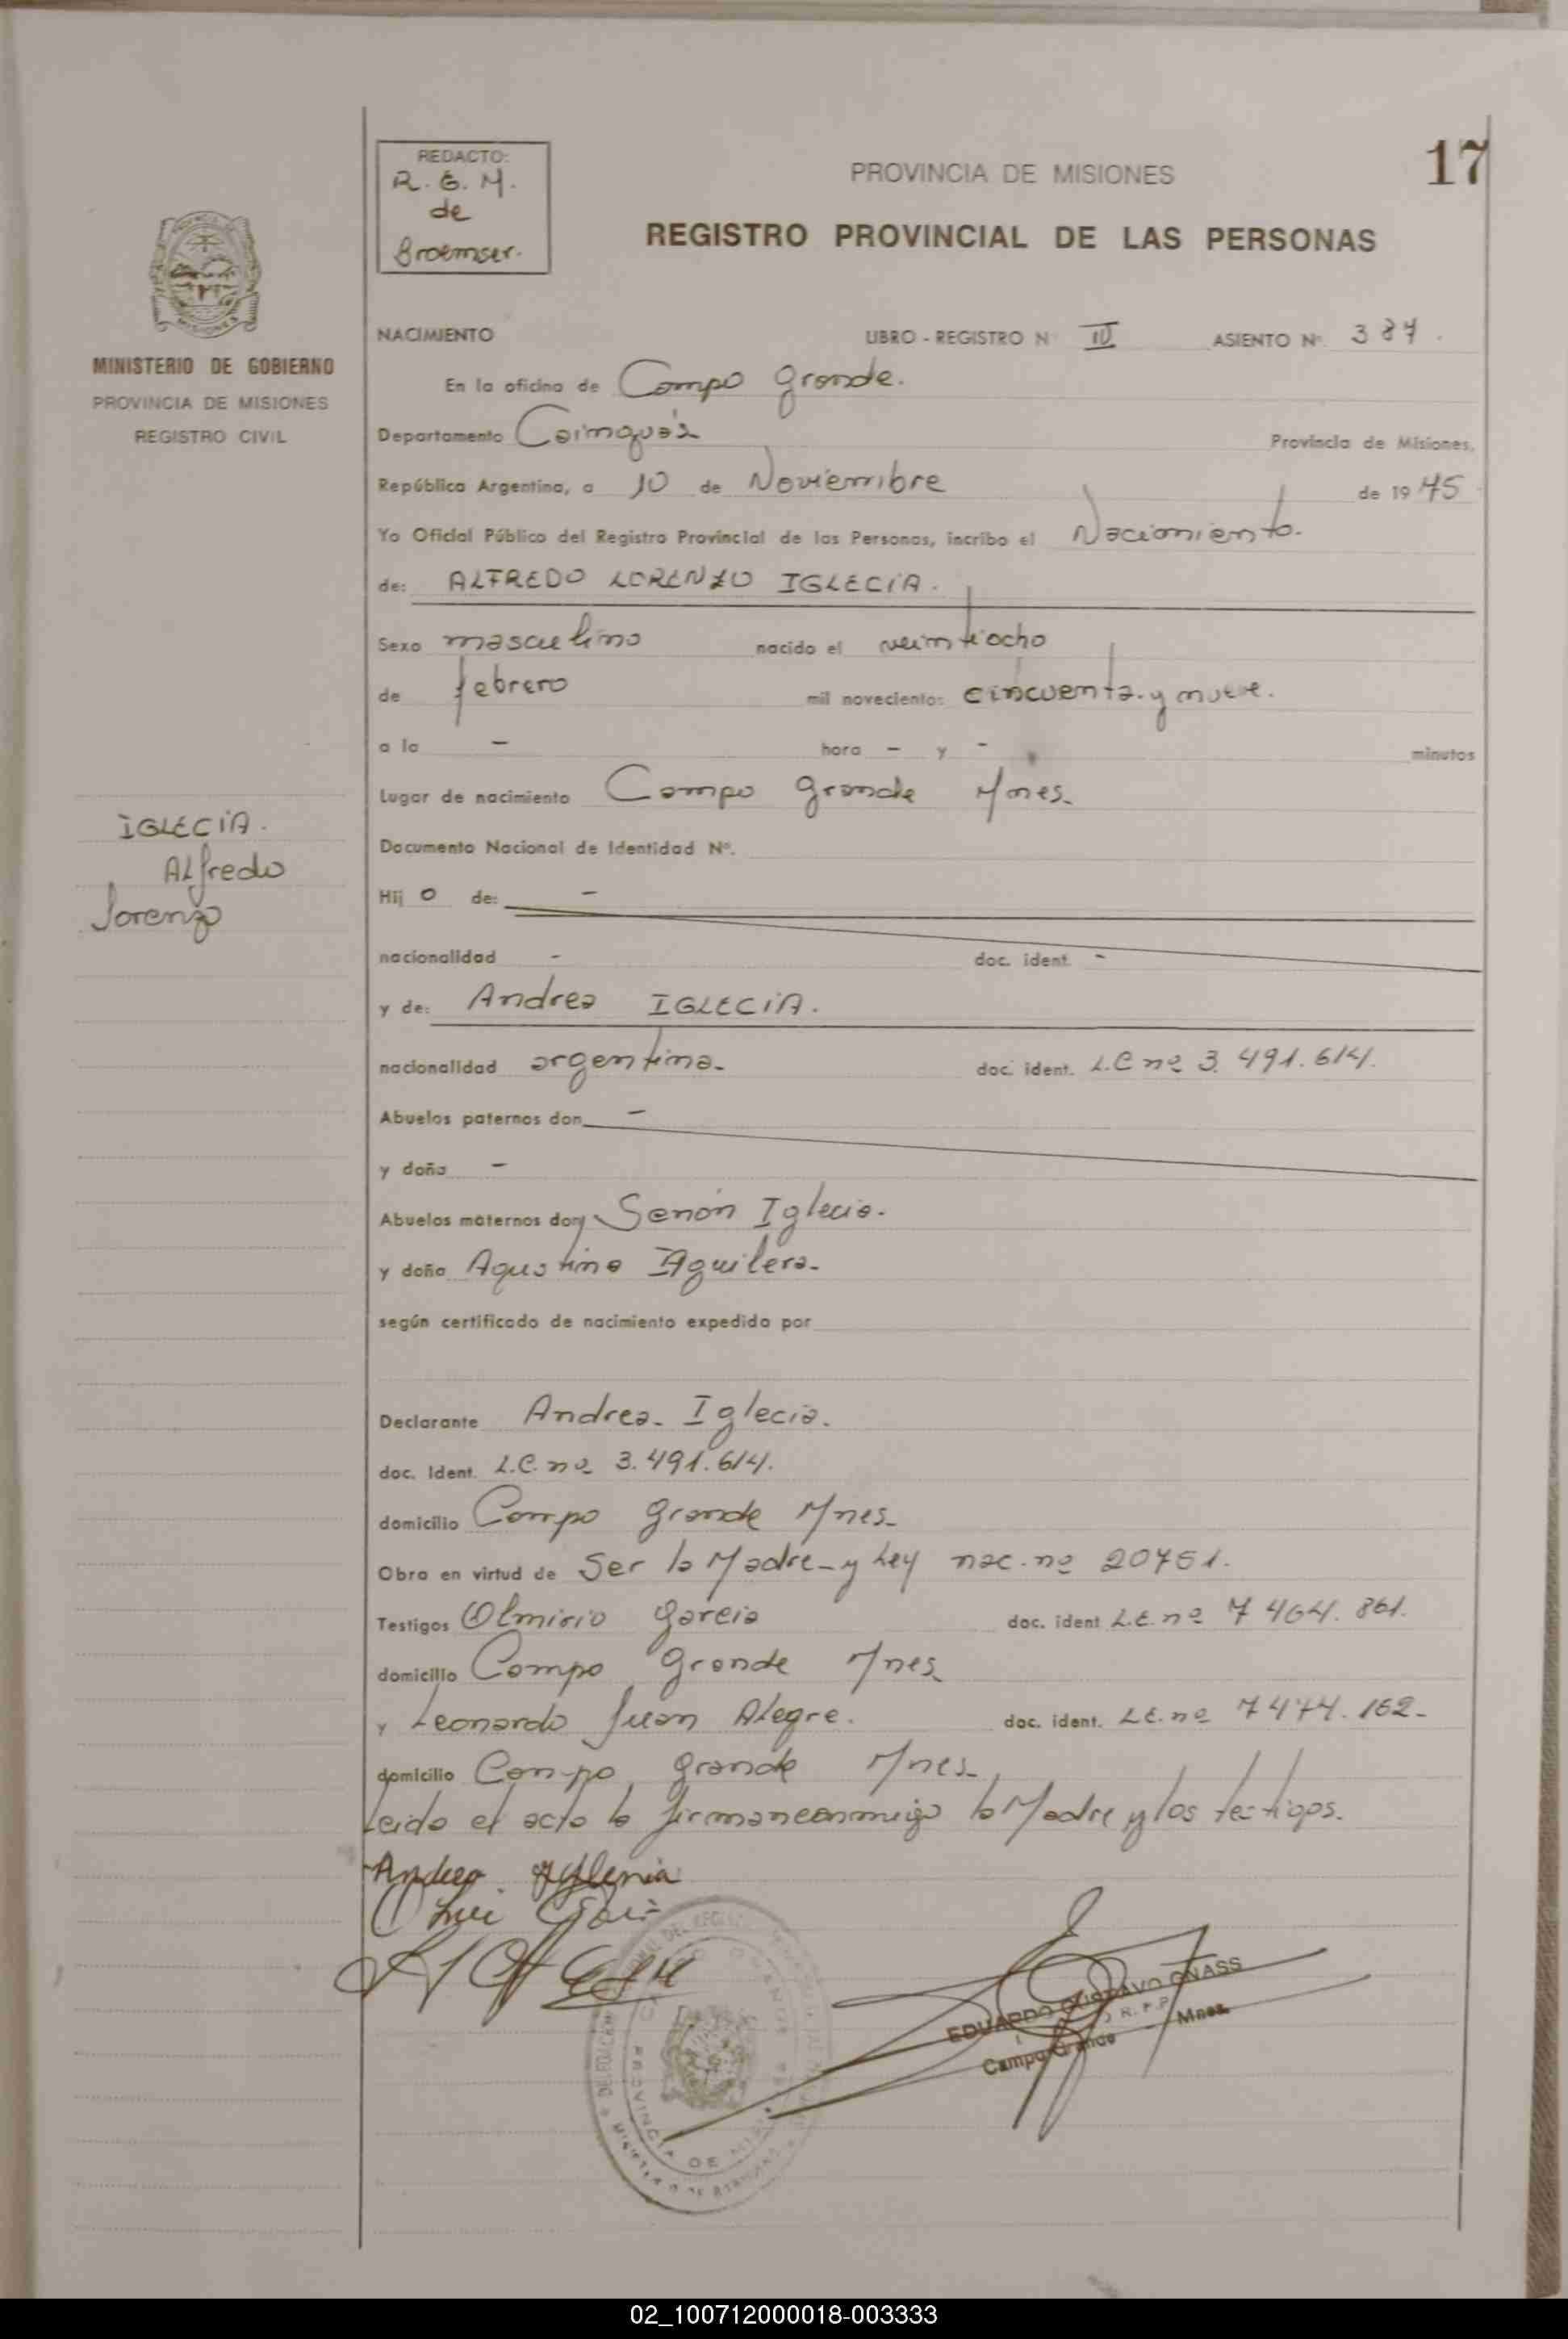 17
REDACTO:
R. G. M.
de
Broemser.
PROVINCIA DE MISIONES
REGISTRO PROVINCIAL DE LAS PERSONAS
MINISTERIO DE GOBIERNO
PROVINCIA DE MISIONES
REGISTRO CIVIL
NACIMIENTO LIBRO - REGISTRO Nº III ASIENTO Nº 387.
En la oficina de Campo Grande.
Departamento Cainguás Provincia de Misiones,
República Argentina, a 10 de Noviembre de 1975
Yo Oficial Público del Registro Provincial de las Personas, incribo el Nacimiento.
de: ALFREDO LORENZO IGLECIA.
Sexo masculino nacido el veintiocho
de febrero mil novecientos cincuenta y nueve.
a la - hora - y - minutos
Lugar de nacimiento Campo Grande Mnes.
IGLECIA.
Alfredo
Lorenzo
Documento Nacional de Identidad Nº.
Hij o de: -
nacionalidad - doc. ident. -
y de: Andrea IGLECIA.
nacionalidad argentina. doc. ident. L.C nº 3.491.614.
Abuelos paternos don -
y doña -
Abuelos maternos don Senón Iglecia.
y doña Agustina Aguilera.
según certificado de nacimiento expedido por
Declarante Andrea Iglecia.
doc. Ident. L.C. nº 3.491.614.
domicilio Campo Grande Mnes.
Obra en virtud de Ser la Madre y Ley nac. nº 20751.
Testigos Olmirio Garcia doc. ident L.E. nº 7464.861.
domicilio Campo Grande Mnes
y Leonardo Juan Alegre. doc. ident. L.E. nº 7474.162-
domicilio Campo Grande Mnes.
Leida el acta la firman conmigo la Madre y los testigos.
Andrea
EDUARDO GUSTAVO GNASS
R. P. P.
Campo Grande - Mnes.
PROVINCIA DE
02_100712000018-003333